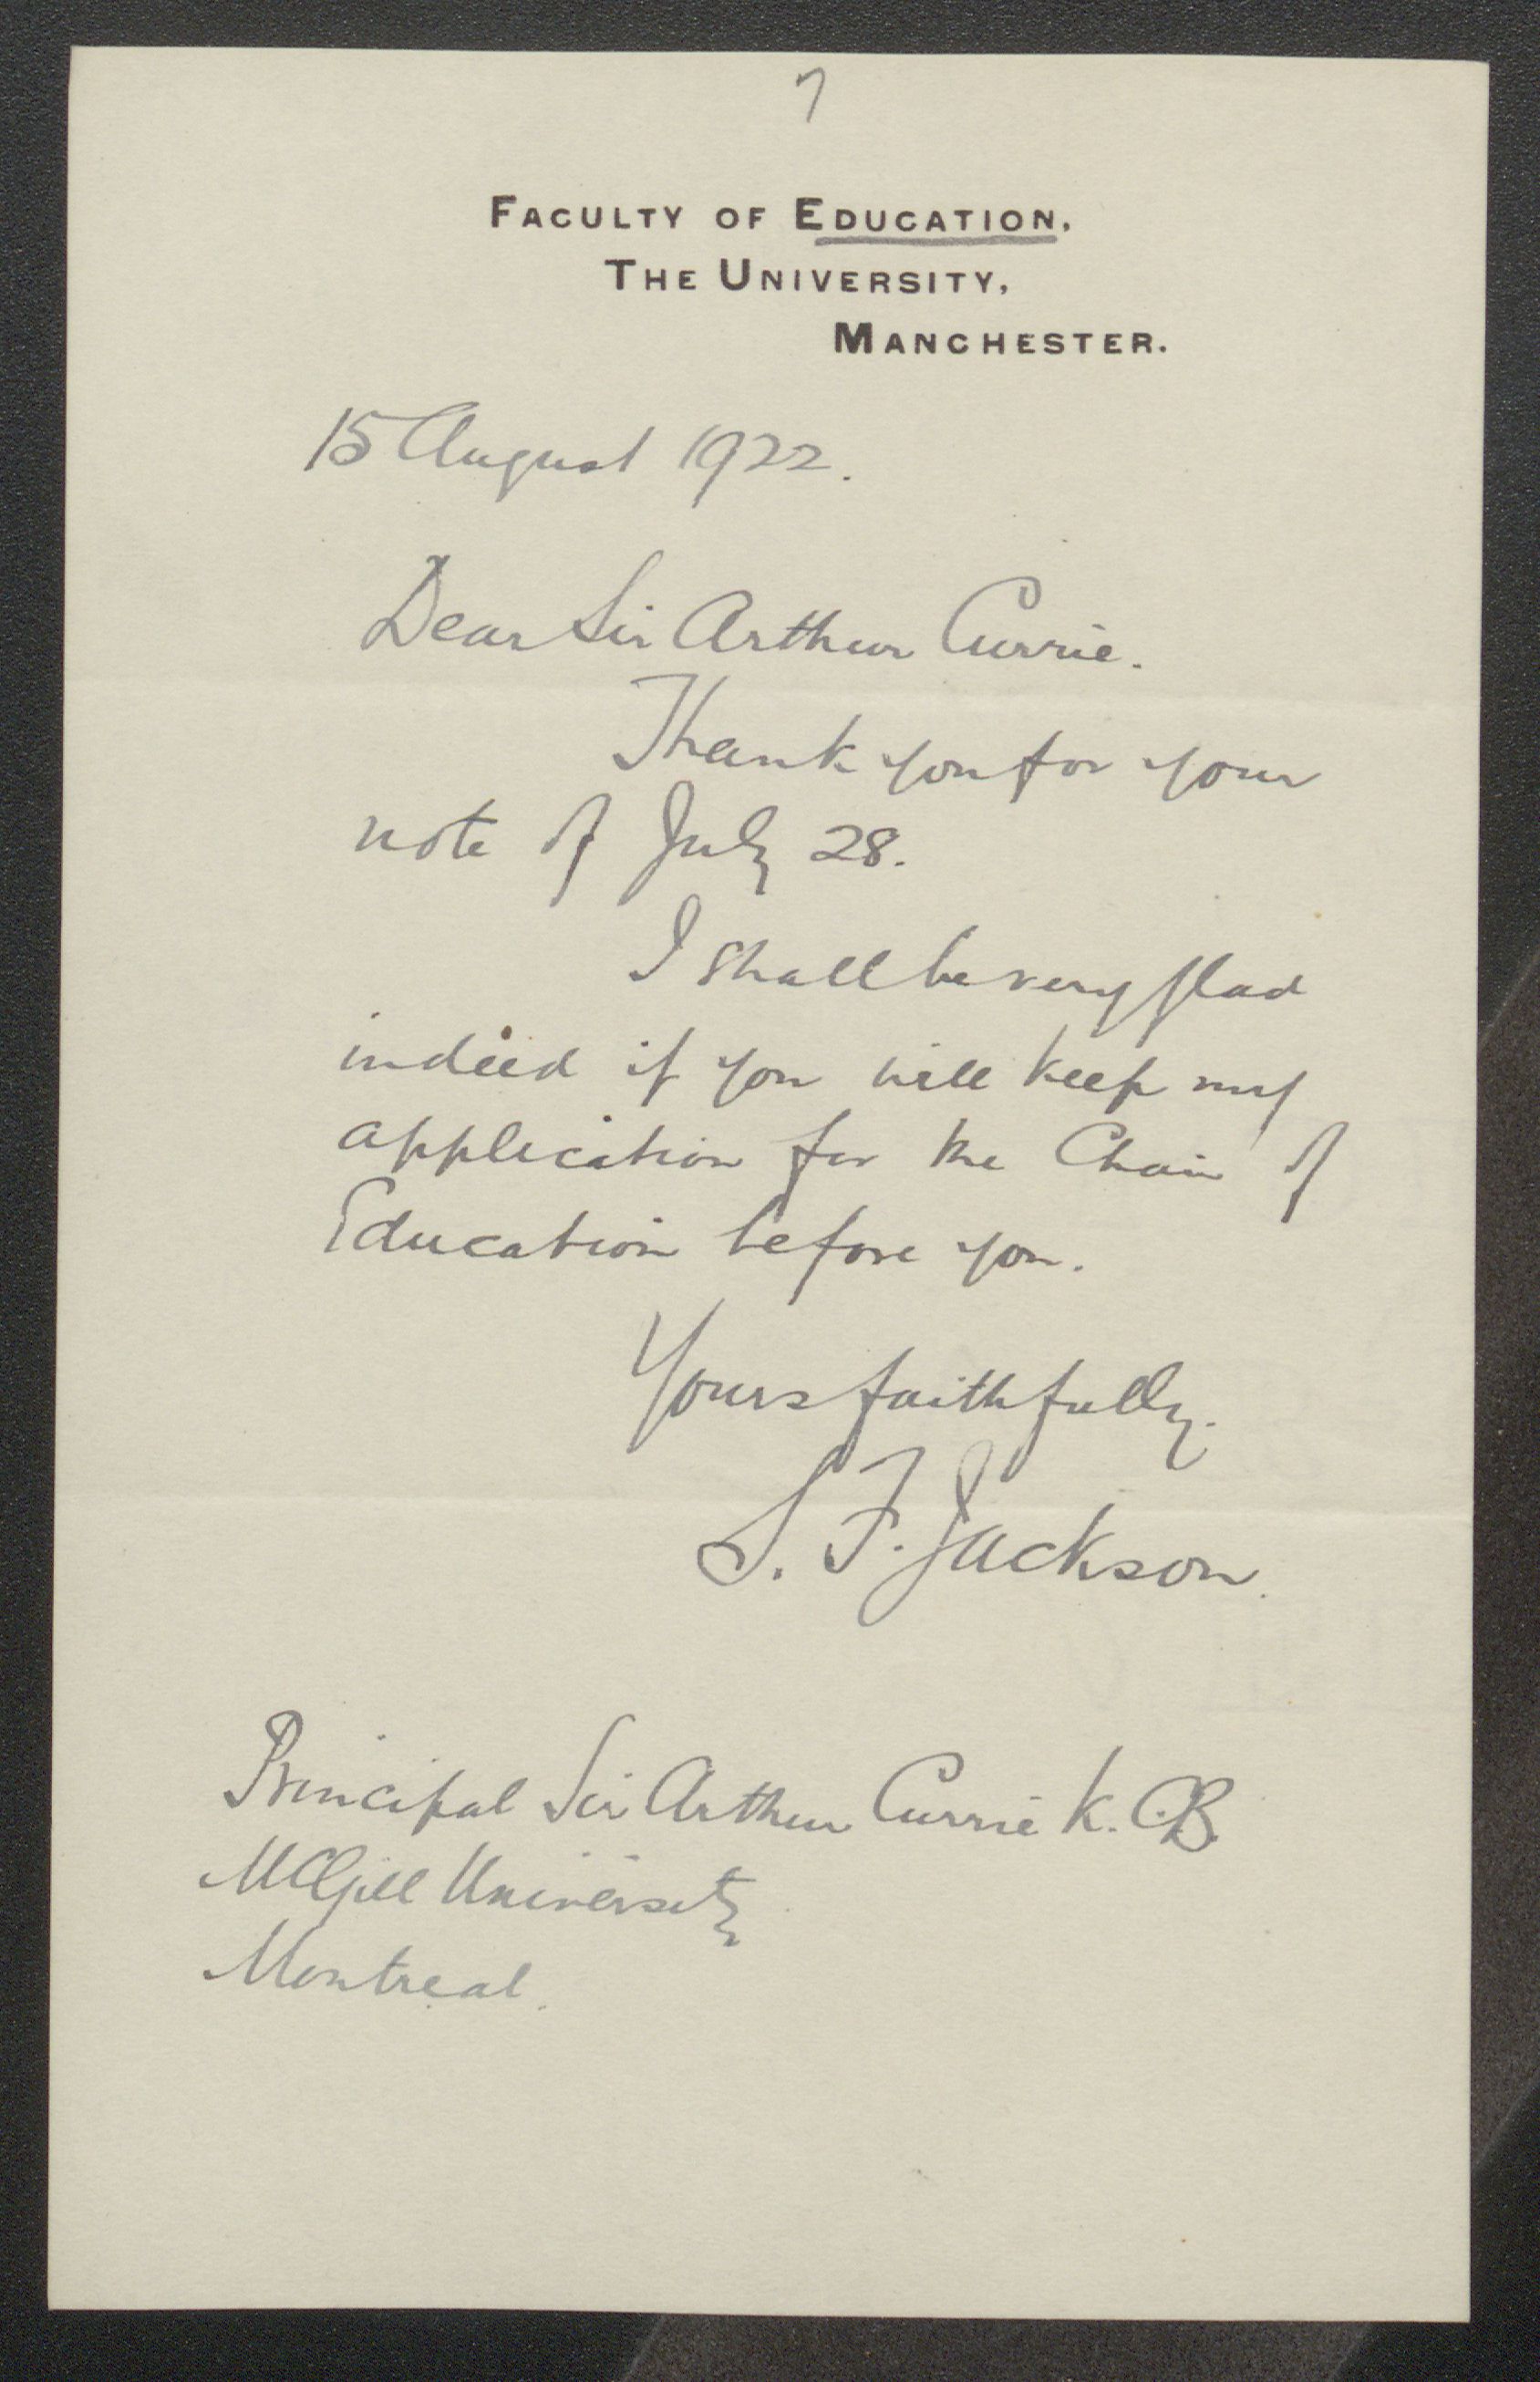 7
FACULTY OF EDUCATION,
THE UNIVERSITY,
MANCHESTER.
15 August 1922.
Dear Sir Arthur Currie.
Thank you for your
note of July 28.
I shall be very glad
indeed if you will keep my
application for the Chair of
Education before you.
Yours faithfully.
S. F. Jackson.
Principal Sir Arthur Currie K.C.B.
McGill University
Montreal.